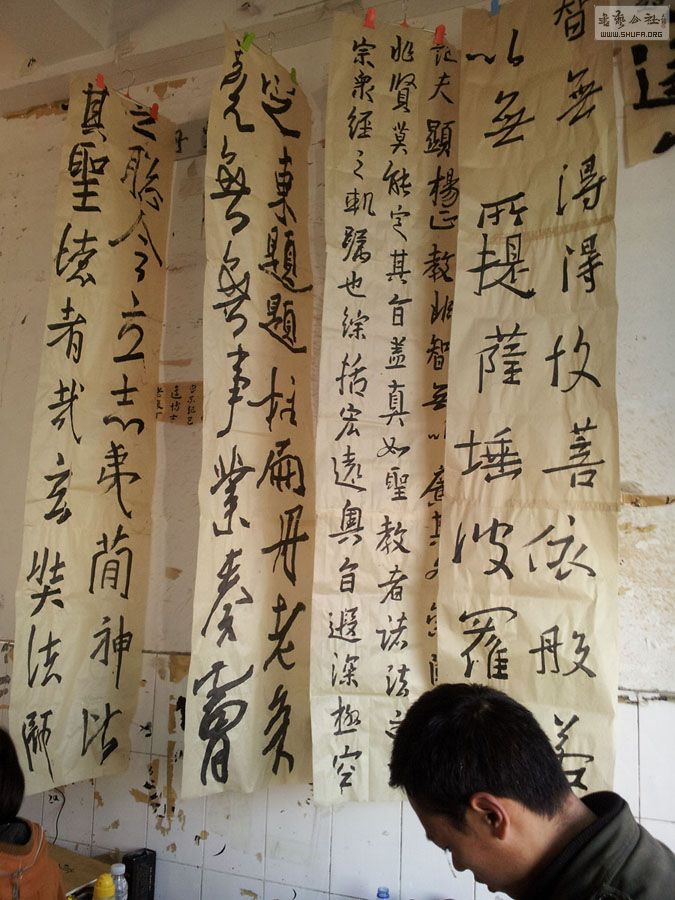 书艺公社
WWW.SHUFA.ORG
智無淂得故菩依般若
以無所提薩埵波羅
記夫顯楊正教非智無以廣其文
非賢莫能定其旨盖真如聖教者諸法之
宗衆經之軌躅也綜括宏遠奥旨遐深極空
東題題柱扁舟老矣
竟無無事業奏霄
之聡令立志夷簡神
其聖德者哉玄奘法師